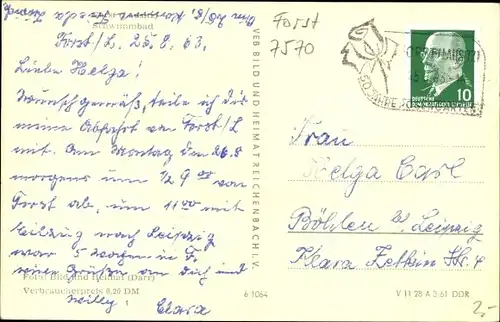 Schwimmbad
Forst
7570
Forst/L. 25.8.63.
Liebe Helga!
Wunschgemäß, teile ich dir
meine Abfahrt von Forst/L
mit. Am Montag den 26.8
morgens um 1/2 9 von
Forst ab, um 11 00 mit
Eilzug nach Leipzig
war 5 Wochen in F.
viele Grüße an Dich und
Willy Clara
Foto: Bild und Heimat (Darr)
Verbraucherpreis 0,20 DM
VEB BILD UND HEIMAT REICHENBACH I. V.
6 1064
50 JAHRE
DEUTSCHE
DEMOKRATISCHE REPUBLIK
10
Frau
Helga
Böhlen bei Leipzig
Klara Zetkin Str. 4
V 11 28 A 3/61 DDR
2,-